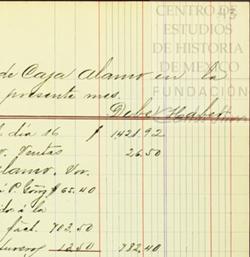 CENTRO DE
ESTUDIOS
DE HISTORIA
DE MEXICO
FUNDACIÓN
43
de Caja Alamo en la
presente mes.
Debe Haber
día 16 $ 1421.92
Ventas 26.50
Alamo.
$ 65.40
á la
fact. 702.50
782.40